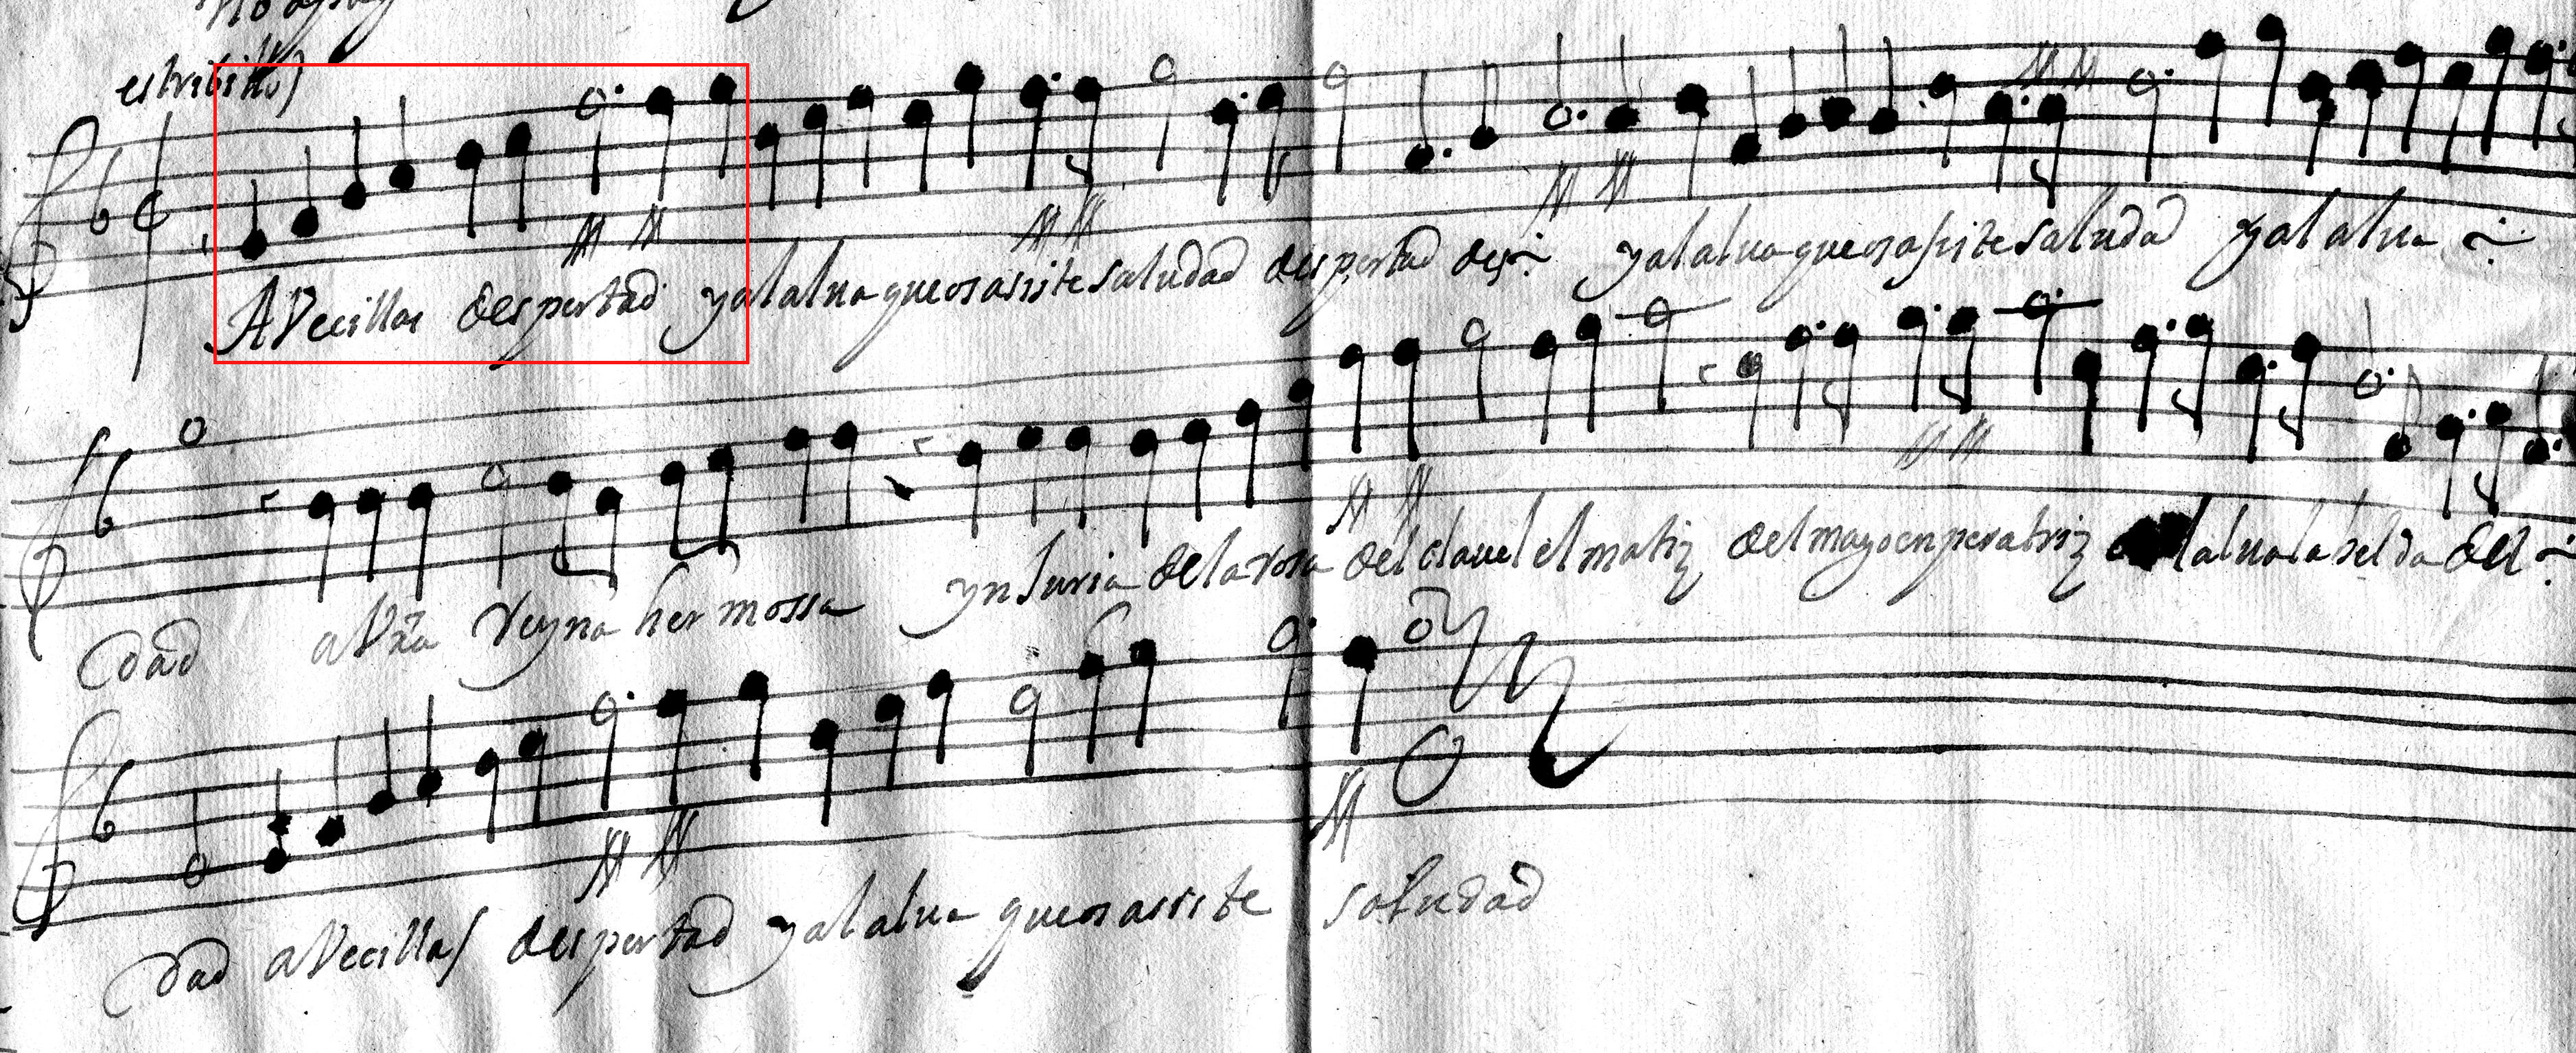 estribillo
Avecillas despertad y al alva que os assiste saludad despertad des y al alva que os asiste saludad y al alva
dad a Vra Reyna hermossa ynJuria de la rosa del clavel el matiz del mayo enperatriz al alva la beldad
dad aVecillas despertad y al alva que os assiste saludad